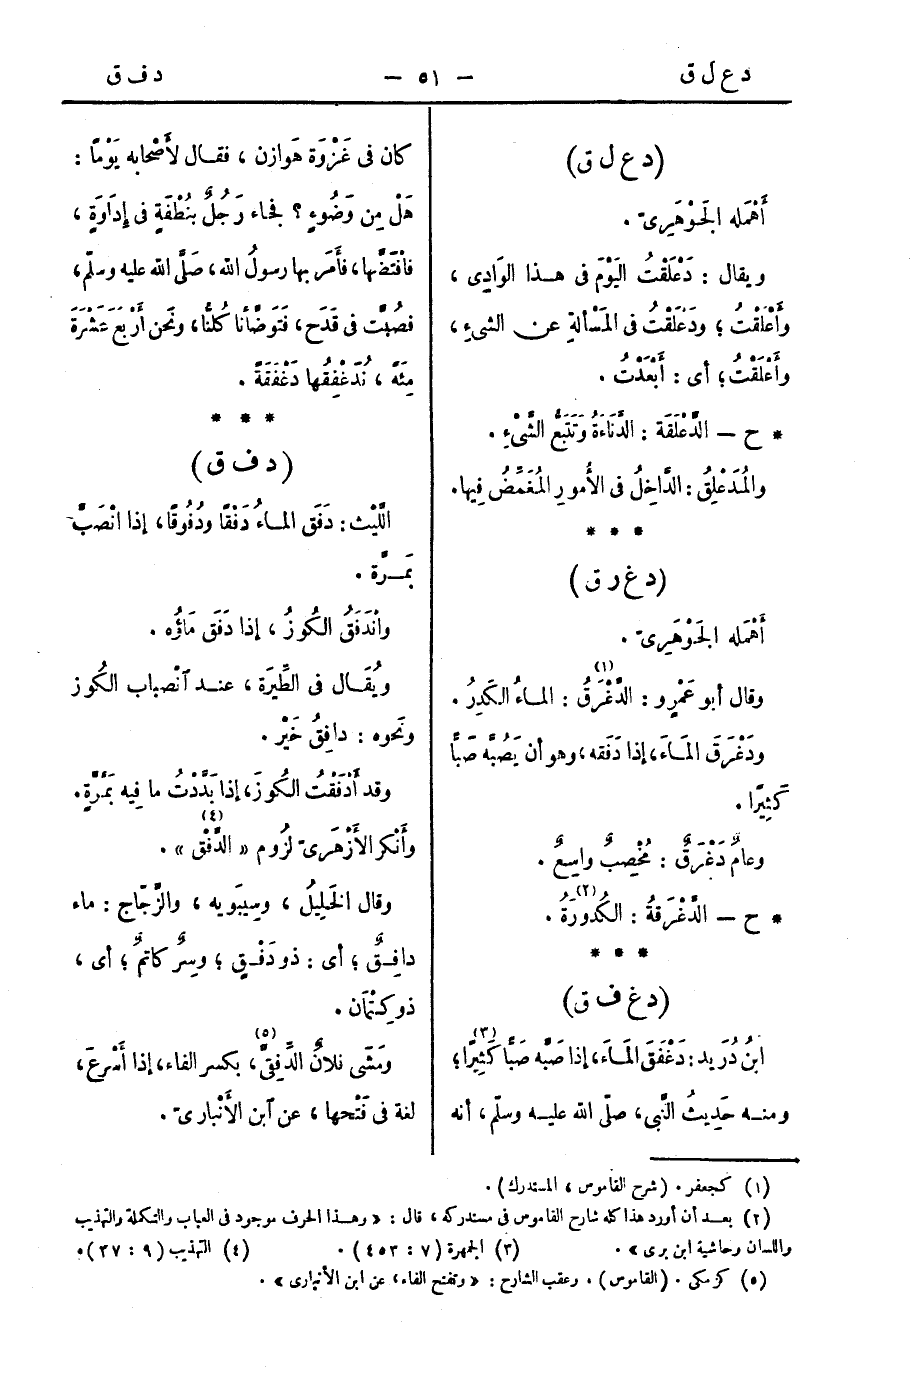 دعلق — ٥١ — دفق
(دعلق)
أَهْمَله الجَوْهَرِىّ .
ويقال : دَعْلَقْتُ اليَوْمَ فى هـذا الوَادِى ،
وأَعْلَقْتُ ؛ ودَعْلَقْتُ فى المَسْألةِ عن الشىءِ ،
وأَعْلَقْتُ؛ أى : أَبْعَدْتُ .
* ح — الدَّعْلَقَة : الدَّنَاءَةُ وتَتَبُّعُ الشَّىْءِ .
والمُدَعْلِقُ : الدَّاخِلُ فى الأُمورِ المُغَمِّضُ فِيها.
* * *
(دغرق)
أَهْمَله الجَوْهَرِىّ .
وقال أبو عَمْرٍو : الدَّغْرَقُ (١) : المـاءُ الكَدِرُ .
ودَغْرَقَ المَـاءَ، إذا دَفَقه، وهو أن يَصُبَّه صَبًّا
كَثِيرًا .
وعامٌ دَغْرَقٌ : مُخْصِبٌ واسِعٌ .
* ح — الدَّغْرَقةُ : الكُدُورَةُ (٢) .
* * *
(دغفق)
ابنُ دُرَيد : دَغْفَقَ المَـاءَ، إذا صَبَّه صَبًّا كَثِيرًا (٣) ؛
ومنـه حَدِيثُ النَّبِى، صلّى الله عليـه وسلّم، أنه
كان فى غَزْوَة هَوازِن ، فقـال لأَصْحابِه يَوْمًا :
هَلْ مِن وَضُوءٍ ؟ فجاء رَجُلٌ بنُطْفَةٍ فى إِدَاوَةٍ ،
فافْتَضَّها، فأَمَر بها رسولُ الله، صَلَّى الله عليه وسلّم،
فصُبَّت فى قَدَح، فتَوَضَّأنا كُلُّنا، ونَحن أَرْبَعَ عَشْرَةَ
مِئَة ، نُدَغْفِقُها دَغْفَقَةً .
* * *
(دفق)
اللَّيْث : دَفَق المـاءُ دَفْقًا ودُفُوقًا، إذا انْصَبَّ
بمَـرَّة .
وانْدَفَقَ الكُوزُ ، إذا دَفَق مَاؤُه .
ويُقَـال فى الطِّيَرَة ، عنـد ٱنْصِباب الكُوز
ونَحوه : دافِقُ خَيْر .
وقد أَدْفَقْتُ الكُوزَ، إذا بَدَّدْتُ ما فِيه بمَرَّةٍ.
وأَنْكر الأزْهَرىّ لُزُوم « الدَّفْق » (٤) .
وقال الخَلِيلُ ، وسِيبَوَيه ، والزَّجّاج : ماء
دافِـقٌ ؛ أى : ذو دَفْـقٍ ؛ وسِرٌّ كاتمٌ ؛ أى ،
ذو كِتْمَان .
ومَشَى فلانٌ الدِّفِقَّى (٥)، بكسر الفاء، إذا أَسْرعَ،
لغة فى فَتْحها ، عن ٱبن الأَنْبارىّ .
(١) كجعفر . (شرح القاموس ، المستدرك) .
(٢) بعـد أن أورد هذا كله شارح القاموس فى مستدركه ، قال : « وهـذا الحرف موجود فى العباب والتكملة والتهذيب
واللسان وحاشية ابن برى » . (٣) الجمهرة (٧ : ٤٥٣) . (٤) التهذيب (٩ : ٣٧) .
(٥) كزمكى . (القاموس) . وعقب الشارح : « وتفتح الفاء، عن ابن الأنبارى » .